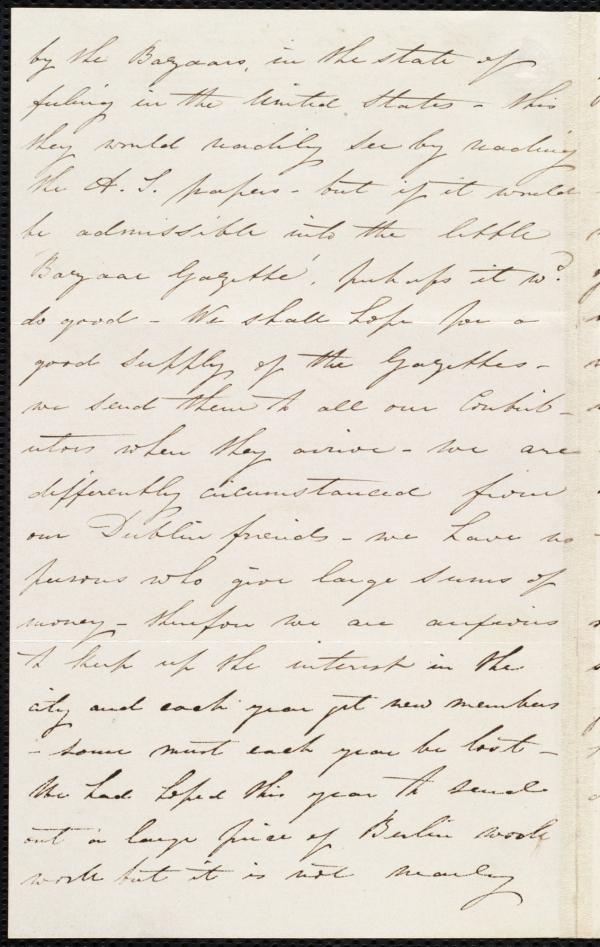 by the Bazaars, in the state of
feeling in the United States - this
they would readily see by reading
the A. S. papers - but if it would
be admissible into the little
'Bazaar Gazette', perhaps it wd.
do good - We shall hope for a
good supply of the Gazettes -
we send them to all our Contrib-
utors when they arrive - we are
differently circumstanced from
our Dublin friends - we have no
persons who give large sums of
money - therefore we are anxious
to keep up the interest in the
city and each year get new members
- some must each year be lost -
We had hoped this year to send
out a large piece of Berlin wool
work but it is not nearly